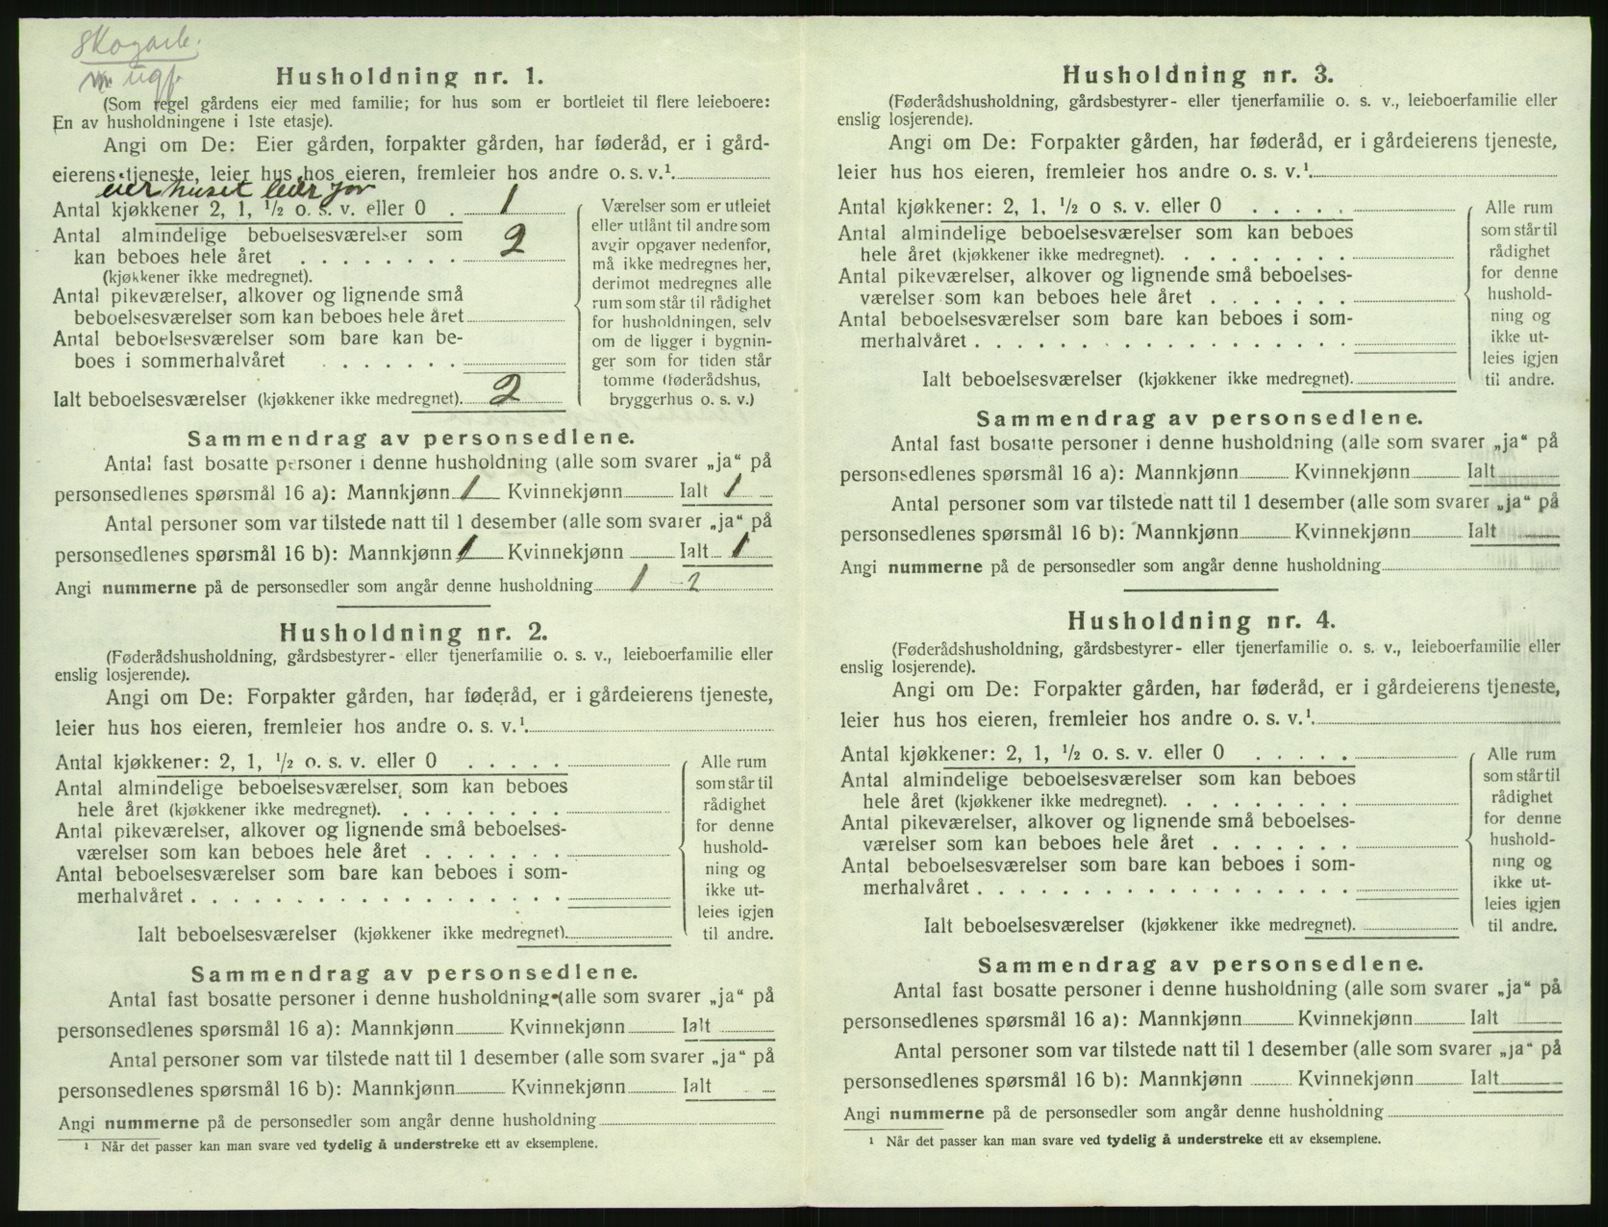 Skogarb.
ugf.
Husholdning nr. 1.
(Som regel gårdens eier med familie; for hus som er bortleiet til flere leieboere:
En av husholdningene i 1ste etasje).
Angi om De: Eier gården, forpakter gården, har føderåd, er i gård-
eierens tjeneste, leier hus hos eieren, fremleier hos andre o. s. v.¹
eier huset leier jor
Antal kjøkkener 2, 1, ½ o. s. v. eller 0 . 1
Antal almindelige beboelsesværelser som
kan beboes hele året . . . . . . . . 2
(kjøkkener ikke medregnet).
Antal pikeværelser, alkover og lignende små
beboelsesværelser som kan beboes hele året
Antal beboelsesværelser som bare kan be-
boes i sommerhalvåret . . . . . . .
Ialt beboelsesværelser (kjøkkener ikke medregnet). 2
Værelser som er utleiet
eller utlånt til andre som
avgir opgaver nedenfor,
må ikke medregnes her,
derimot medregnes alle
rum som står til rådighet
for husholdningen, selv
om de ligger i bygnin-
ger som for tiden står
tomme (føderådshus,
bryggerhus o. s. v.)
Sammendrag av personsedlene.
Antal fast bosatte personer i denne husholdning (alle som svarer „ja“ på
personsedlenes spørsmål 16 a): Mannkjønn 1 Kvinnekjønn Ialt 1
Antal personer som var tilstede natt til 1 desember (alle som svarer „ja“ på
personsedlenes spørsmål 16 b): Mannkjønn 1 Kvinnekjønn Ialt 1
Angi nummerne på de personsedler som angår denne husholdning 1 - 2
Husholdning nr. 2.
(Føderådshusholdning, gårdsbestyrer- eller tjenerfamilie o. s. v., leieboerfamilie eller
enslig losjerende).
Angi om De: Forpakter gården, har føderåd, er i gårdeierens tjeneste,
leier hus hos eieren, fremleier hos andre o. s. v.¹
Antal kjøkkener: 2, 1, ½ o. s. v. eller 0 . . . . .
Antal almindelige beboelsesværelser som kan beboes
hele året (kjøkkener ikke medregnet). . . . . . . . .
Antal pikeværelser, alkover og lignende små beboelses-
værelser som kan beboes hele året . . . . . . .
Antal beboelsesværelser som bare kan beboes i som-
merhalvåret . . . . . . . . . . . . . . . . . .
Ialt beboelsesværelser (kjøkkener ikke medregnet).
Alle rum
som står til
rådighet
for denne
hushold-
ning og
ikke ut-
leies igjen
til andre.
Sammendrag av personsedlene.
Antal fast bosatte personer i denne husholdning (alle som svarer „ja“ på
personsedlenes spørsmål 16 a): Mannkjønn Kvinnekjønn Ialt
Antal personer som var tilstede natt til 1 desember (alle som svarer „ja“ på
personsedlenes spørsmål 16 b): Mannkjønn Kvinnekjønn Ialt
Angi nummerne på de personsedler som angår denne husholdning
¹ Når det passer kan man svare ved tydelig å understreke ett av eksemplene.
Husholdning nr. 3.
(Føderådshusholdning, gårdsbestyrer- eller tjenerfamilie o. s. v., leieboerfamilie eller
enslig losjerende).
Angi om De: Forpakter gården, har føderåd, er i gårdeierens tjeneste,
leier hus hos eieren, fremleier hos andre o. s. v.¹
Antal kjøkkener: 2, 1, ½ o s. v. eller 0 . . . . .
Antal almindelige beboelsesværelser som kan beboes
hele året (kjøkkener ikke medregnet). . . . . . . . .
Antal pikeværelser, alkover og lignende små beboelses-
værelser som kan beboes hele året . . . . . . .
Antal beboelsesværelser som bare kan beboes i som-
merhalvåret . . . . . . . . . . . . . . . . . .
Ialt beboelsesværelser (kjøkkener ikke medregnet).
Alle rum
som står til
rådighet
for denne
hushold-
ning og
ikke ut-
leies igjen
til andre.
Sammendrag av personsedlene.
Antal fast bosatte personer i denne husholdning (alle som svarer „ja“ på
personsedlenes spørsmål 16 a): Mannkjønn Kvinnekjønn Ialt
Antal personer som var tilstede natt til 1 desember (alle som svarer „ja“ på
personsedlenes spørsmål 16 b): Mannkjønn Kvinnekjønn Ialt
Angi nummerne på de personsedler som angår denne husholdning
Husholdning nr. 4.
(Føderådshusholdning, gårdsbestyrer- eller tjenerfamilie o. s. v., leieboerfamilie eller
enslig losjerende).
Angi om De: Forpakter gården, har føderåd, er i gårdeierens tjeneste,
leier hus hos eieren, fremleier hos andre o. s. v.¹
Antal kjøkkener: 2, 1, ½ o. s. v. eller 0 . . . . .
Antal almindelige beboelsesværelser som kan beboes
hele året (kjøkkener ikke medregnet). . . . . . . . .
Antal pikeværelser, alkover og lignende små beboelses-
værelser som kan beboes hele året . . . . . . .
Antal beboelsesværelser som bare kan beboes i som-
merhalvåret . . . . . . . . . . . . . . . . . .
Ialt beboelsesværelser (kjøkkener ikke medregnet).
Alle rum
som står til
rådighet
for denne
hushold-
ning og
ikke ut-
leies igjen
til andre.
Sammendrag av personsedlene.
Antal fast bosatte personer i denne husholdning (alle som svarer „ja“ på
personsedlenes spørsmål 16 a): Mannkjønn Kvinnekjønn Ialt
Antal personer som var tilstede natt til 1 desember (alle som svarer „ja“ på
personsedlenes spørsmål 16 b): Mannkjønn Kvinnekjønn Ialt
Angi nummerne på de personsedler som angår denne husholdning
¹ Når det passer kan man svare ved tydelig å understreke ett av eksemplene.